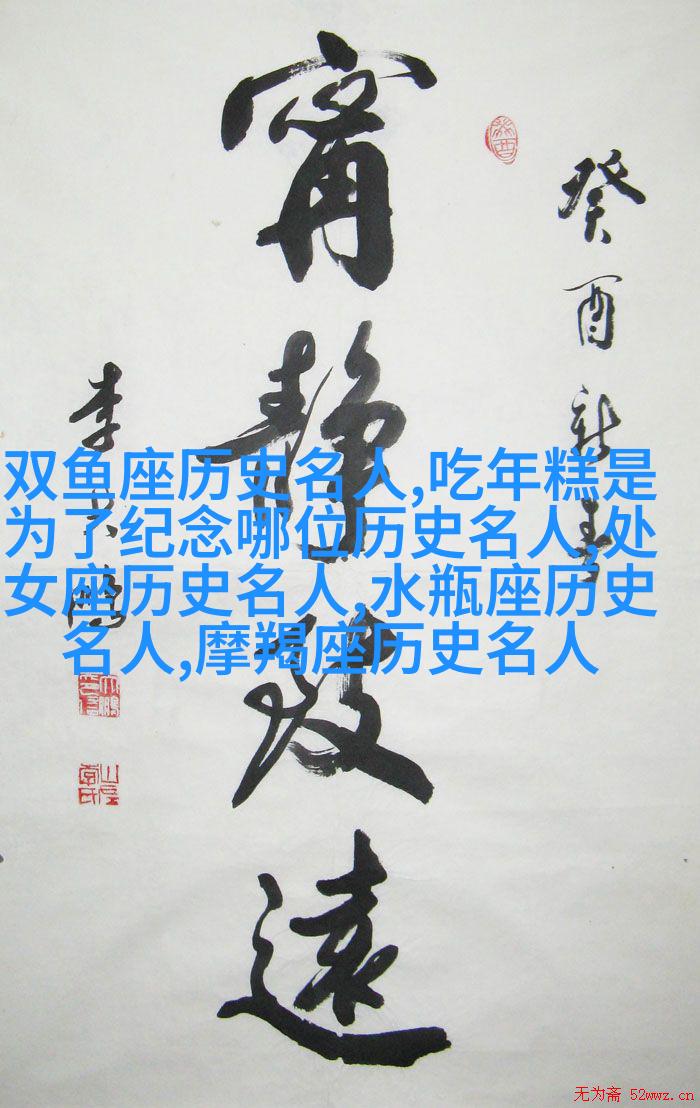 癸酉新春
甯靜致遠
李
双鱼座历史名人,吃年糕是
为了纪念哪位历史名人,处
女座历史名人,水瓶座历史
名人,摩羯座历史名人
无为斋 52wwz.cn